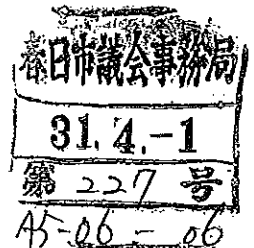 春日市議会事務局
31.4.-1
第 227 号
A5-06-06